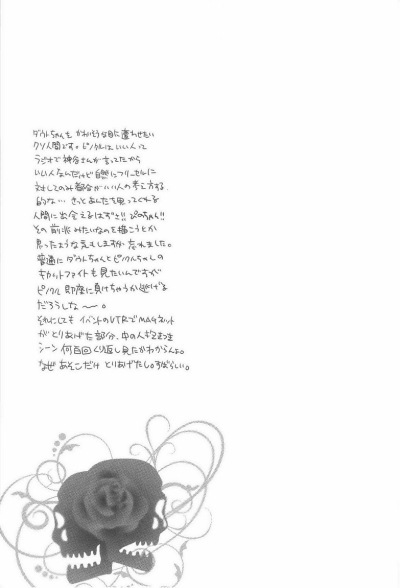 ダウトちゃんを かわいそうな目に遭わせたい
クソ人間です。ピノクルはいい人って
ラジオで神谷さんが言ってたから
いい人なんだけど自然にフリーセルに
対してのみ都合がいい人の考え方する
的な… きっとあんたを思ってくれる
人間に出会えるはずさ!! ぴのちゃん!!
その前兆みたいなのを描こうとか
思ったような気もしますが忘れました。
普通にダウトちゃんとピノクルちゃんの
キャットファイトも見たいんですが
ピノクル即座に負けちゃうか逃げる
だろうしな〜。
それにしてもイベントのVTRでMAGネット
がとりあげた部分、中の人
シーン何百回くり返し見たかわからんよ。
なぜあそこだけとりあげたし。すばらしい。